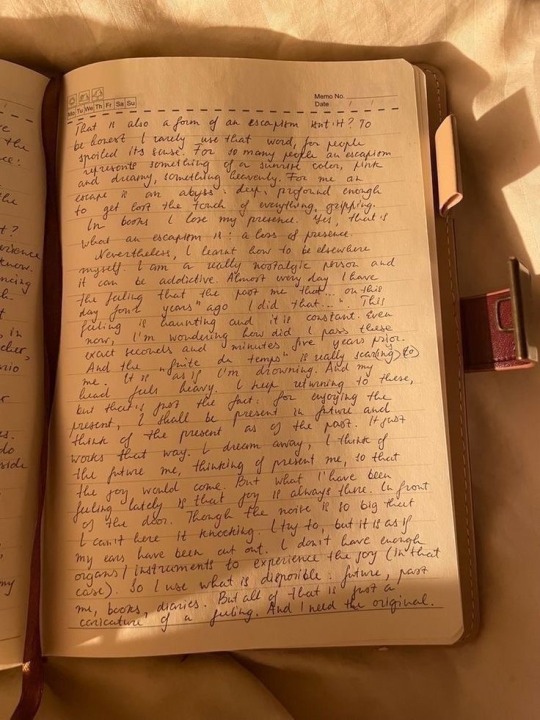 Memo No.
Mo Tu We Th Fr Sa Su
Date / /
That is also a form of an escapism isn't it? To
be honest I rarely use that word, for people
spoiled its sense. For so many people an escapism
represents something of a sunrise color, pink
and dreamy, something heavenly. For me an
escape is an abyss: deep, profound enough
to get lost the touch of everything, gripping.
In books I lose my presence. Yes, that is
what an escapism is: a loss of presence.
Nevertheless, I learnt how to be elsewhere
myself. I am a really nostalgic person and
it can be addictive. Almost every day I have
the feeling that the past me that... "on this
day four years ago I did that...". This
feeling is haunting and it is constant. Even
now, I'm wondering how did I pass these
exact seconds and minutes five years prior.
And the "fuite du temps" is really scaring (to)
me. It is as if I'm drowning. And my
head feels heavy. I keep returning to these,
but that is just the fact: for enjoying the
present, I shall be present in future and
think of the present as of the past. It just
works that way. I dream away, I think of
the future me, thinking of present me, so that
the joy would come. But what I have been
feeling lately is that joy is always there. In front
of the door. Though the noise is so big that
I can't here it knocking. I try to, but it is as if
my ears have been cut out. I don't have enough
organs / instruments to experience the joy (in that
case). So I use what is disponible: future, past
me, books, diaries. But all of that is just a
caricature of a feeling. And I need the original.
the
nce!
the
t?
erience
know.
ncing
h.
t
, in
cher,
rio
r
s.
do
side
my